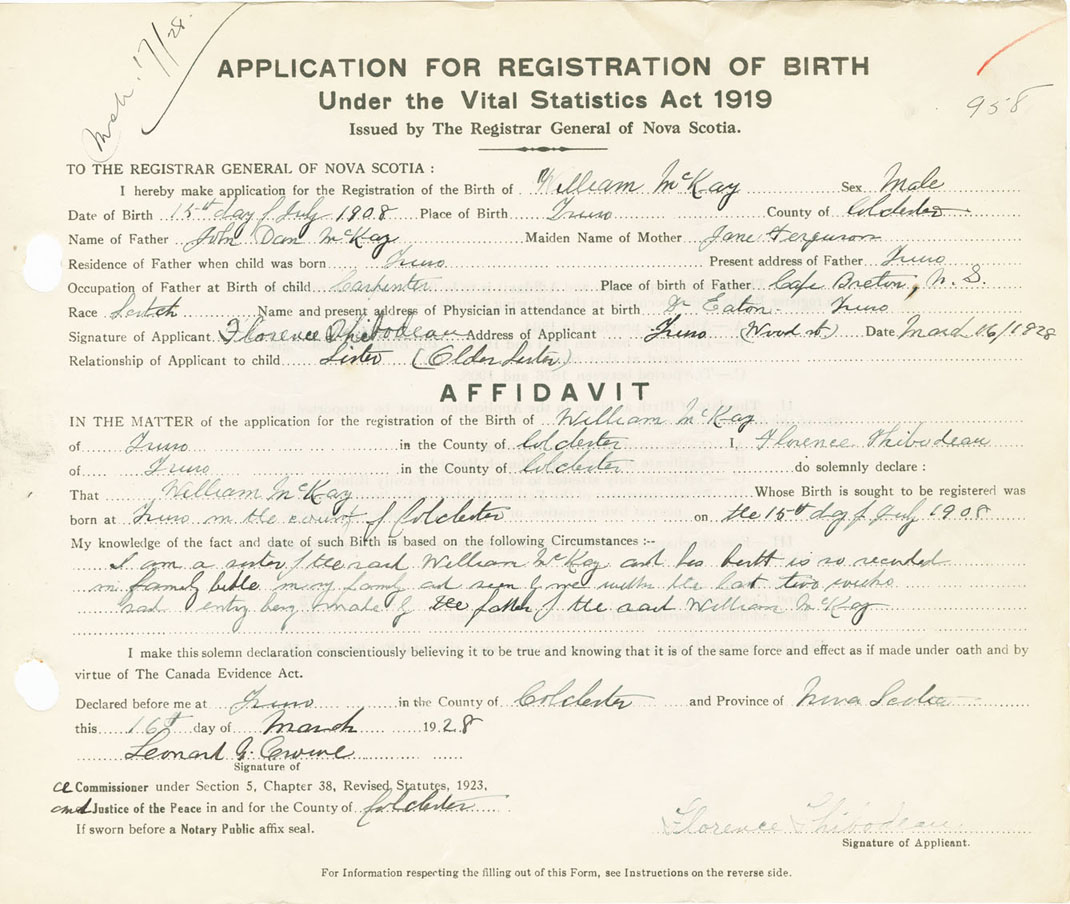 Mch 17/28.
APPLICATION FOR REGISTRATION OF BIRTH
Under the Vital Statistics Act 1919
958
Issued by The Registrar General of Nova Scotia.
TO THE REGISTRAR GENERAL OF NOVA SCOTIA :
I hereby make application for the Registration of the Birth of William McKay Sex Male
Date of Birth 15th day of July 1908 Place of Birth Truro County of Colchester
Name of Father John Dan McKay Maiden Name of Mother Jane Ferguson
Residence of Father when child was born Truro Present address of Father Truro
Occupation of Father at Birth of child Carpenter Place of birth of Father Cape Breton, N. S.
Race Scotch Name and present address of Physician in attendance at birth Dr Eaton Truro
Signature of Applicant Florence Thibodeau Address of Applicant Truro (Wood st) Date March 16/1928
Relationship of Applicant to child Sister (Older Sister)
AFFIDAVIT
IN THE MATTER of the application for the registration of the Birth of William McKay
of Truro in the County of Colchester I, Florence Thibodeau
of Truro in the County of Colchester do solemnly declare :
That William McKay Whose Birth is sought to be registered was
born at Truro in the county of Colchester on the 15th day of July 1908
My knowledge of the fact and date of such Birth is based on the following Circumstances :--
I am a sister of the said William McKay and his birth is so recorded
in family bible in my family and seen by me within the last two weeks
said entry being made by the father of the said William McKay
I make this solemn declaration conscientiously believing it to be true and knowing that it is of the same force and effect as if made under oath and by
virtue of The Canada Evidence Act.
Declared before me at Truro in the County of Colchester and Province of Nova Scotia
this 16th day of March 1928
Leonard G. Crowe
Signature of
a Commissioner under Section 5, Chapter 38, Revised Statutes, 1923,
and Justice of the Peace in and for the County of Colchester
If sworn before a Notary Public affix seal.
Florence Thibodeau
Signature of Applicant.
For Information respecting the filling out of this Form, see Instructions on the reverse side.